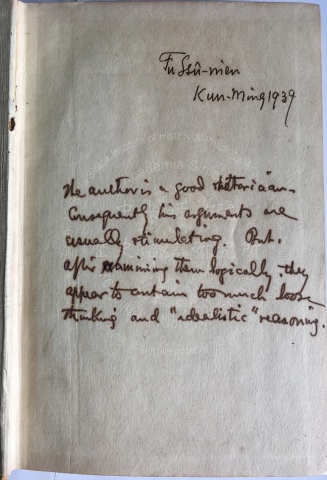 Fu Ssŭ-nien
Kun-Ming 1939
The author is a good rhetorician.
Consequently his arguments are
usually stimulating. But,
after examining them logically, they
appear to contain too much loose
thinking and "idealistic" reasoning.